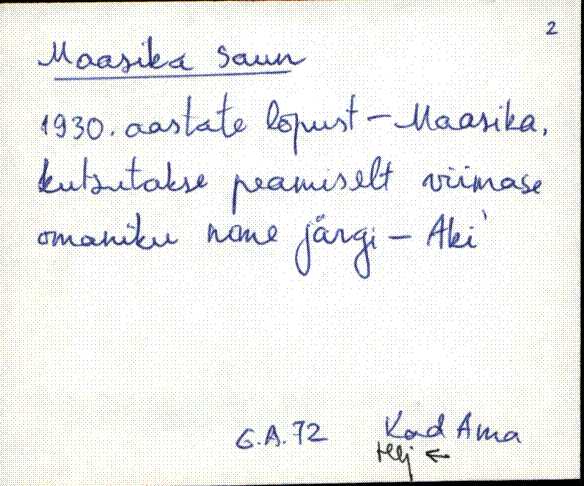 2
Maasika saun
1930. aastate lõpust – Maasika,
kutsutakse peamiselt viimase
omaniku nime järgi – Aki'
G.A.72 Kad Ama